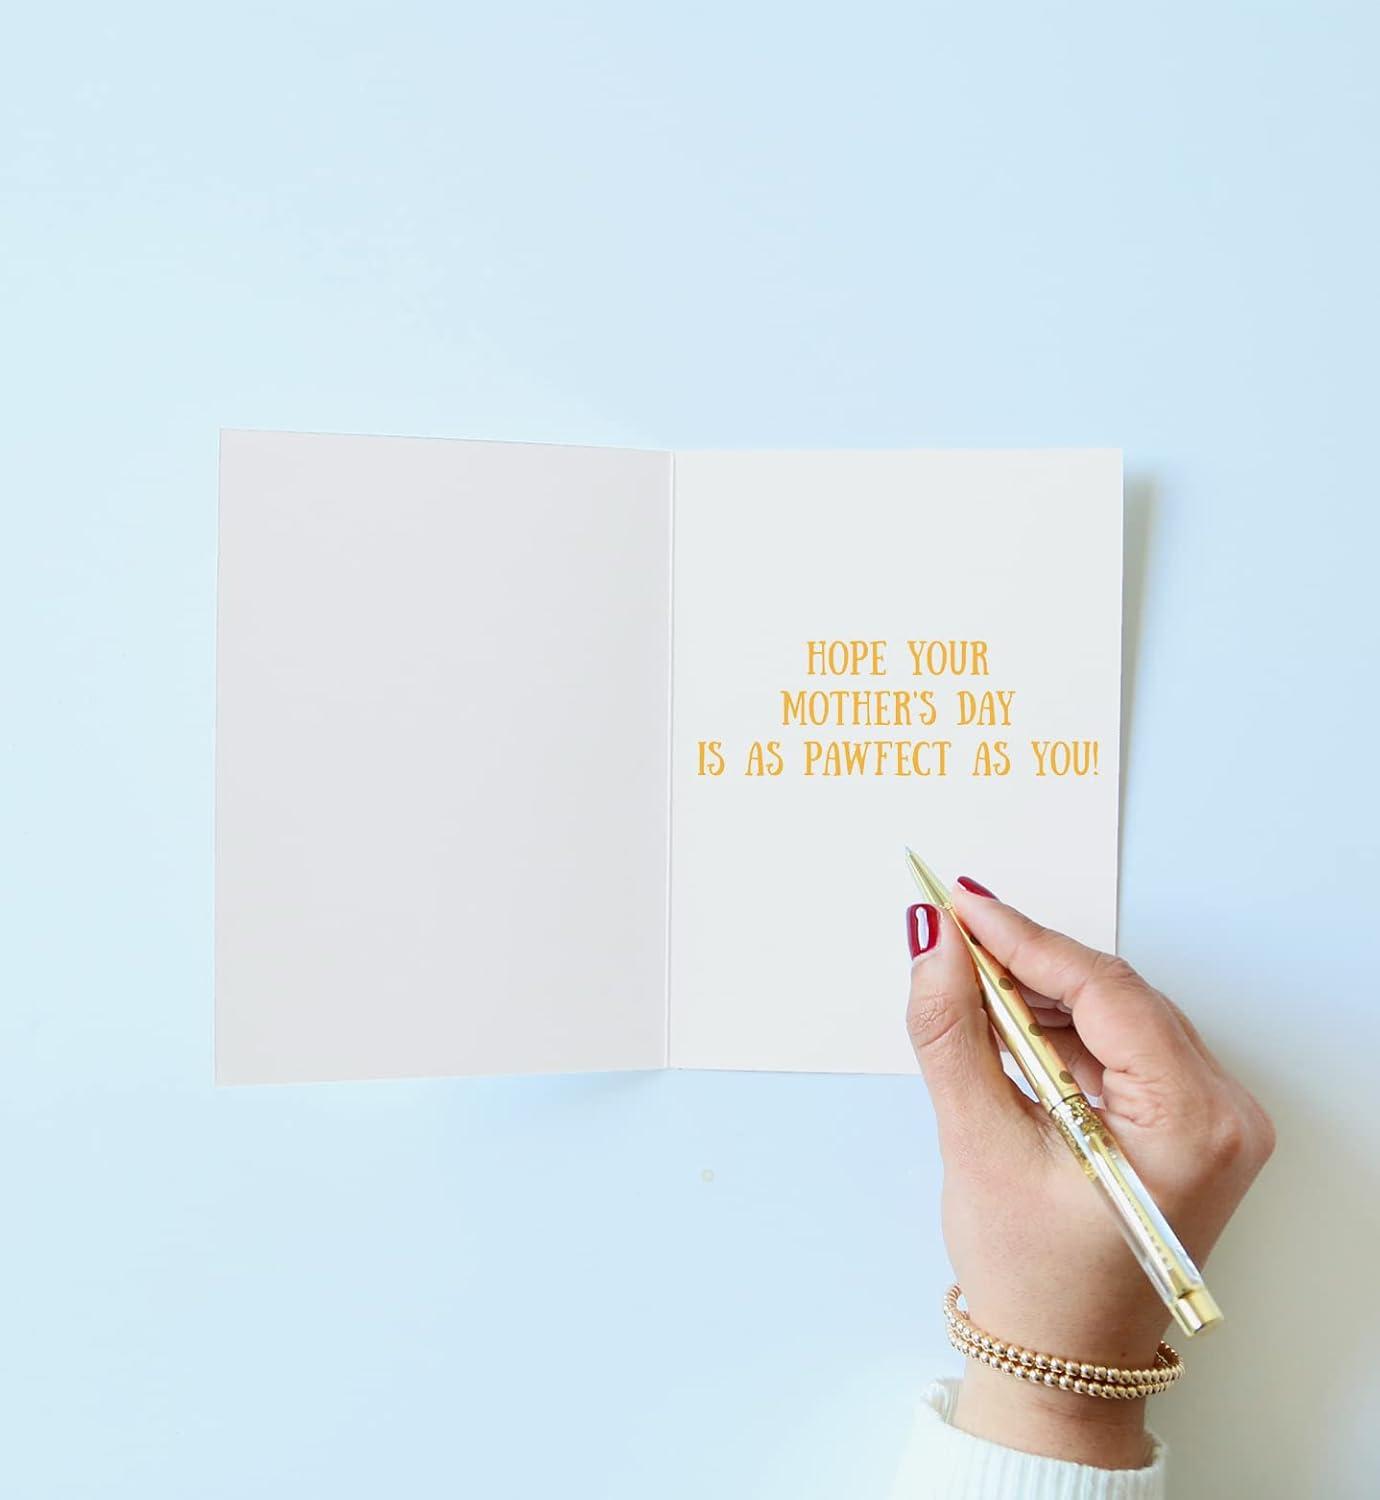 HOPE YOUR
MOTHER'S DAY
IS AS PAWFECT AS YOU!